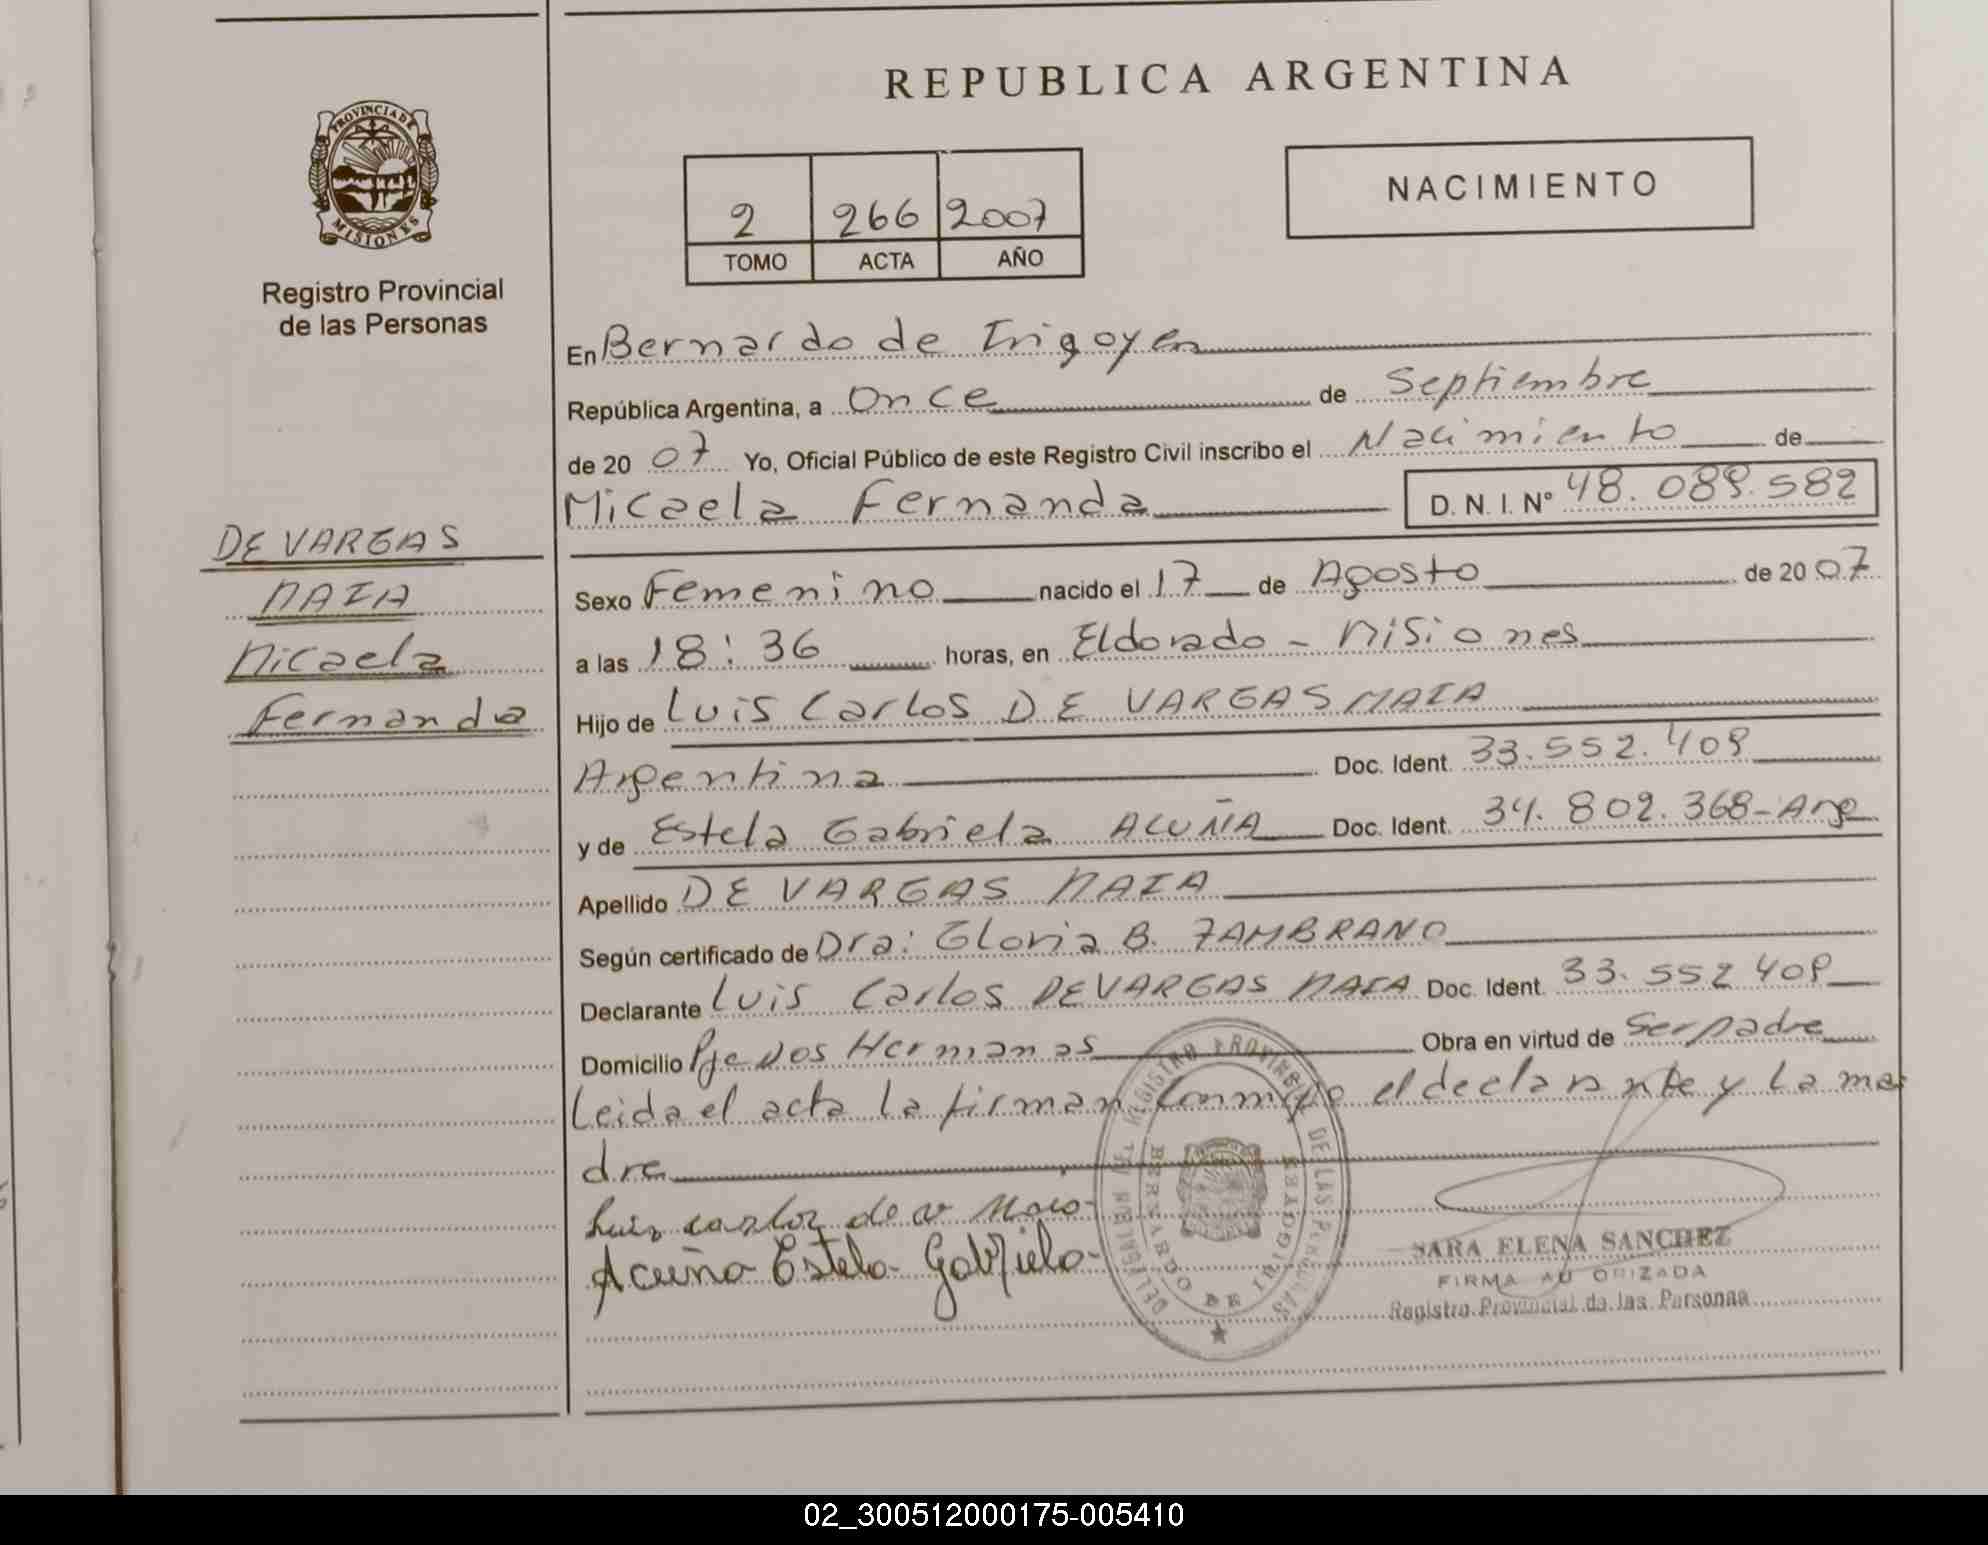 REPUBLICA ARGENTINA
PROVINCIA DE
MISIONES
Registro Provincial
de las Personas
2 266 2007
TOMO ACTA AÑO
NACIMIENTO
En Bernardo de Irigoyen
República Argentina, a Once de Septiembre
de 20 07 Yo, Oficial Público de este Registro Civil inscribo el Nacimiento de
Micaela Fernanda D. N. I. Nº 48.089.582
DE VARGAS
MAIA
Micaela
Fernanda
Sexo Femenino nacido el 17 de Agosto de 20 07
a las 18:36 horas, en Eldorado - Misiones
Hijo de Luis Carlos DE VARGAS MAIA
Argentina Doc. Ident. 33.552.409
y de Estela Gabriela ACUÑA Doc. Ident. 34.802.368-Arg
Apellido DE VARGAS MAIA
Según certificado de Dra: Gloria B. ZAMBRANO
Declarante Luis Carlos DE VARGAS MAIA Doc. Ident. 33.552 409
Domicilio Pje Dos Hermanas Obra en virtud de Ser padre
Leida el acta la firman conmigo el declarante y la ma
dre
Luis carlos de v Maia
Acuña Estela Gabriela
DELEGACION DEL REGISTRO PROVINCIAL DE LAS PERSONAS
BERNARDO DE IRIGOYEN
SARA ELENA SANCHEZ
FIRMA AUTORIZADA
Registro Provincial de las Personas
02_300512000175-005410